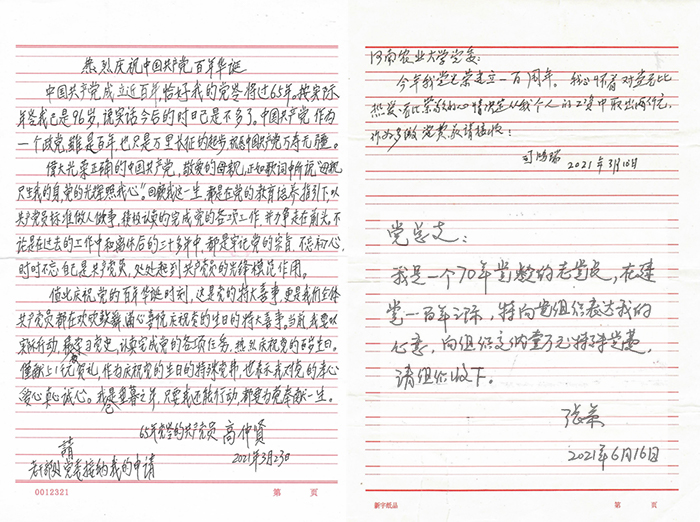 热烈庆祝中国共产党百年华诞
中国共产党成立近百年,恰好我的党龄将过65年。按实际
年岁我已是96岁,说实话今后的时日已是不多了。中国共产党作为
一个政党,虽是百年,也只是万里长征的起步,祝愿中国共产党万寿无疆。
伟大光荣正确的中国共产党,敬爱的母亲,正如歌词中所说“母亲
只生我的身,党的光辉照我心”。回顾我这一生,都是在党的教育培养指引下,以
共产党员标准做人做事,积极认真的完成党的各项工作,并力争走在前头。不
论是在过去的工作中和离休后的三十多年中,都是牢记党的宗旨,不忘初心,
时时不忘自己是共产党员,处处起到共产党员的先锋模范作用。
值此庆祝党的百年华诞时刻,这是党的特大喜事,更是我们全体
共产党员都在欢欣鼓舞,满心喜悦庆祝党的生日的特大喜事。当前我要以
实际行动,学习党史,认真完成党的各项任务,热烈庆祝党的百岁生日。
仅献上1万元贺礼,作为庆祝党的生日的特殊党费,也表示我对党的衷心
爱心真心诚心。我虽是暮之年,只要我还能行动,都要为党奉献一生。
65年党龄的共产党员 高仲贤
2021年3月23日
请
老干部处党委接纳我的申请
0012321
第 页
河南农业大学党委:
今年我党光荣建立一百周年。我心怀着对党无比
热爱、无比崇敬的心情决定从我个人的工资中取出两万元,
作为多缴党费敬请接收!
司鸿瑞
2021年3月10日
党总支:
我是一个70年党龄的老党员,在建
党一百年之际,特向党组织表达我的
心意,向组织交纳壹万元特殊党费,
请组织收下。
张荣
2021年6月16日
新宇纸品
第 页